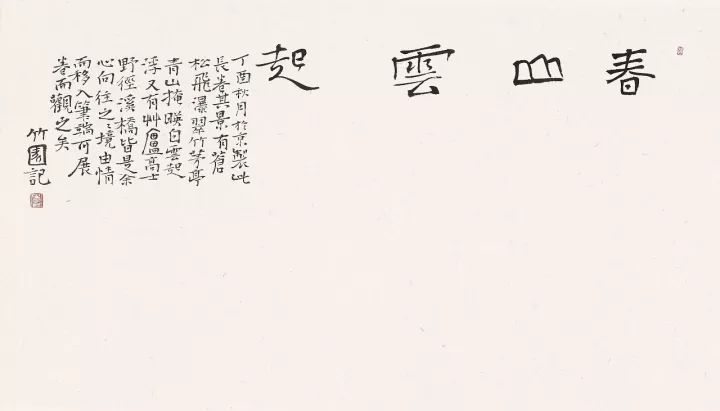 春山雲起
丁酉秋月於京製此
長卷其景有蒼
松飛瀑翠竹茅亭
青山掩暎白雲起
浮又有艸廬高士
野徑溪橋皆是余
心向往之之境由情
而移入筆端可展
卷而觀之矣
竹園記